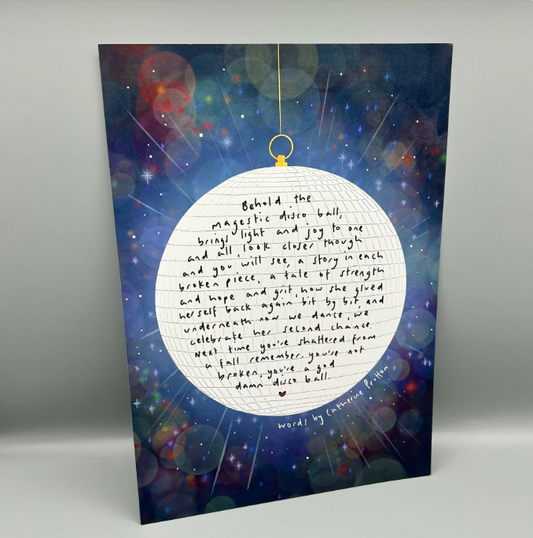 Behold the
magestic disco ball,
brings light and joy to one
and all look closer though
and you will see, a story in each
broken piece, a tale of strength
and hope and grit how she glued
herself back again bit by bit, and
underneath now we dance, we
celebrate her second chance.
Next time you're shattered from
a fall remember you're not
broken, you're a god
damn disco ball.
Words by Catherine Prutton